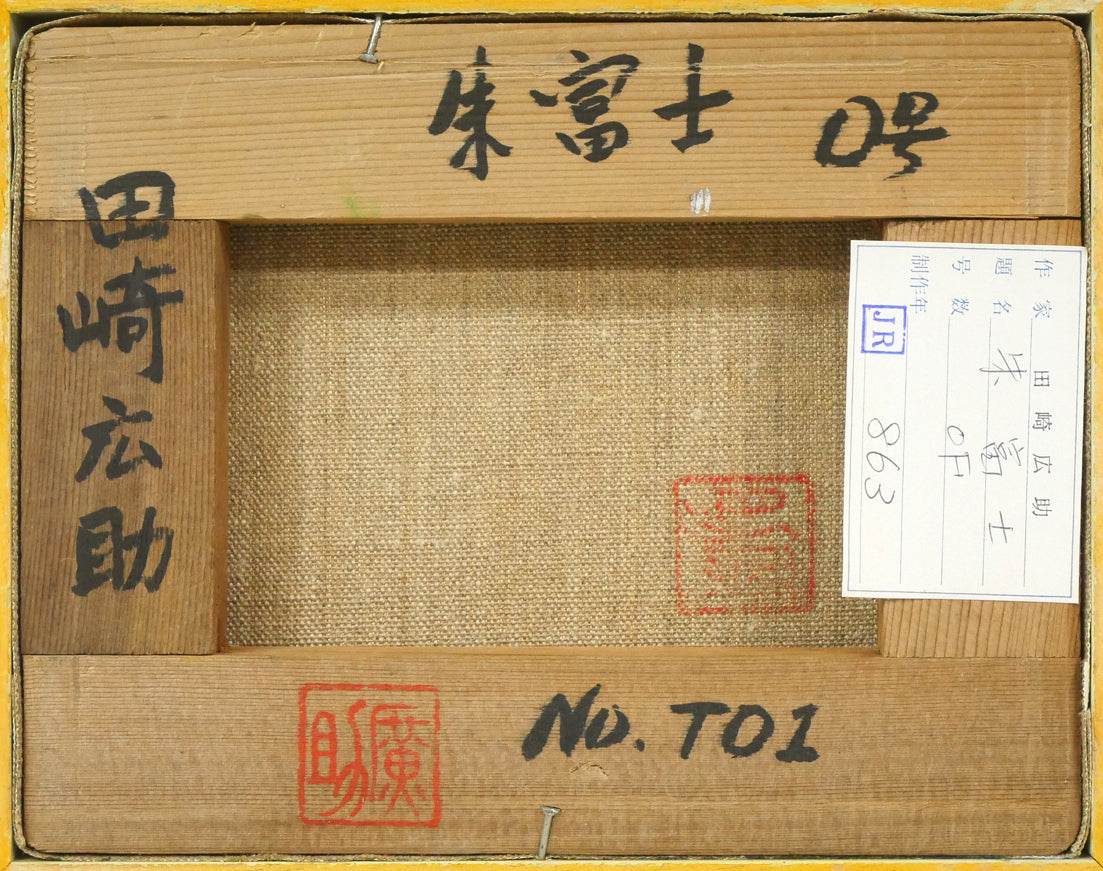 朱富士 0号
田崎広助
作家 田崎広助
題名 朱富士
号数 0F
制作年
JR 863
廣助
No. T01